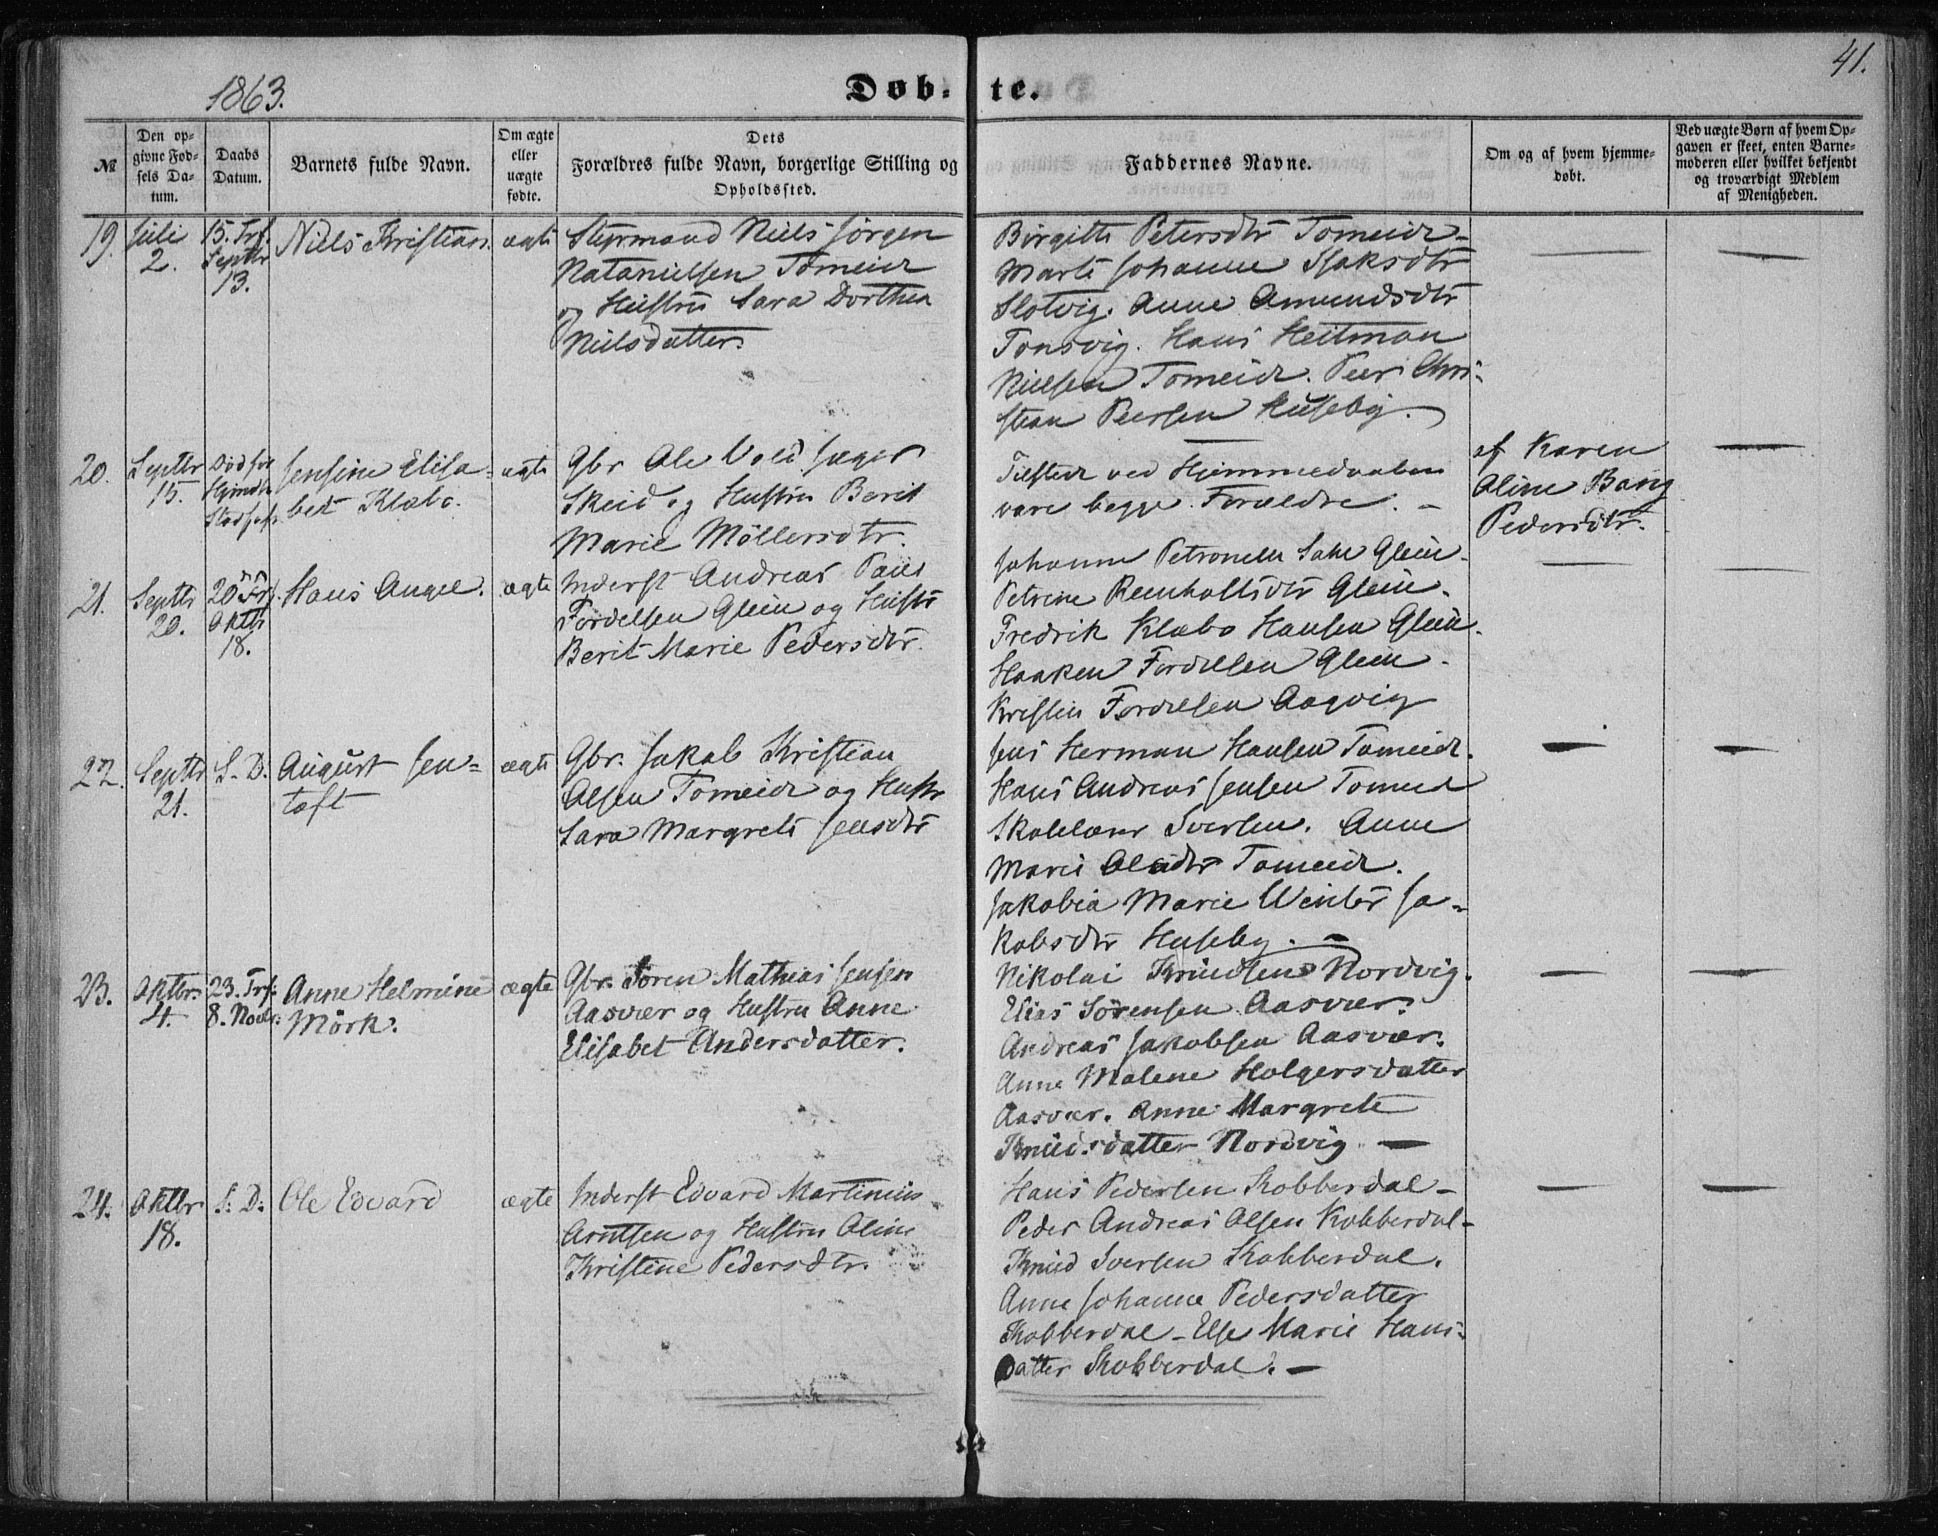 1863.
Døb-
te.
41.
№
Den op-
givne Fød-
sels Da-
tum.
Daabs
Datum.
Barnets fulde Navn.
Om ægte
eller
uægte
fødte.
Dets
Forældres fulde Navn, borgerlige Stilling og
Opholdssted.
Faddernes Navne.
Om og af hvem hjemme-
døbt.
Ved uægte Børn af hvem Op-
gaven er skeet, enten Barne-
moderen eller hvilket bekjendt
og troværdigt Medlem
af Menigheden.
19.
Juli
2.
15. Trf.
Septbr
13.
Niels Kristian.
ægte
Styrmand Niels Jörgen
Natanielsen Tomeide
og Hustru Sara Dorthea
Nielsdatter.
Birgitte Petersdtr Tomeide-
Marte Johanne Isaksdtr
Slotvig. Anne Amundsdtr
Tonsvig. Hans Heitman
Nielsen Tomeide. Peer Chri-
stian Peersen Huseby.
20.
Septbr
15.
Jensine Elisa-
bet Klæbo.
ægte
Gbr Ole Vold Jæger
Skeid og Hustru Berit
Marie Möllersdtr.
Tilstede ved Hjemmedaaben
vare begge Forældre. -
af Karen
Aline Bang
Pedersdtr.
21.
Septbr
20.
20 Trf.
Oktbr
18.
Hans Angel.
ægte
Inderst Andreas
Fordelsen Glein og Hustr
Berit Marie Pedersdtr.
Johanna Petronella Glein.
Petrine Reinholtsdtr Glein.
Fredrik Klæbo Hansen Glein.
Haaken Fordelsen Glein.
Kristen Fordelsen Aagvig
22.
Septbr
21.
S. D.
August Jen-
toft
ægte
Gbr. Jakob Kristian
Olsen Tomeide og Hustr
Sara Margrete Jensdtr
Jens Herman Hansen Tomeide.
Hans Andreas Jensen Tomeid
Skolelærer Iversen. Anne
Marie Olsdtr Tomeide.
Jakobia Marie Winter Ja-
kobsdtr Huseby. -
23.
Oktbr.
4.
23. Trf:
8. Novbr.
Anne Helmine
Mörk.
ægte
Gbr. Sören Mathias Jensen
Aasvær og Hustru Anne
Elisabet Andersdatter.
Nikolai Knudsen Nordvig.
Elias Sörensen Aasvær.
Andreas Jakobsen Aasvær.
Anne Malene Holgersdatter
Aasvær. Anne Margrete
Knudsdatter Nordvig -
24.
Oktbr
18.
S. D.
Ole Edvard
ægte
Inderst Edvard Martinius
Arntsen og Hustru Oline
Kristine Pedersdtr.
Hans Pedersen Kobberdal -
Peder Andreas Olsen Kobberdal -
Knud Iversen Kobberdal.
Anne Johanne Pedersdatter
Kobberdal - Else Marie Hans-
datter Kobberdal. -